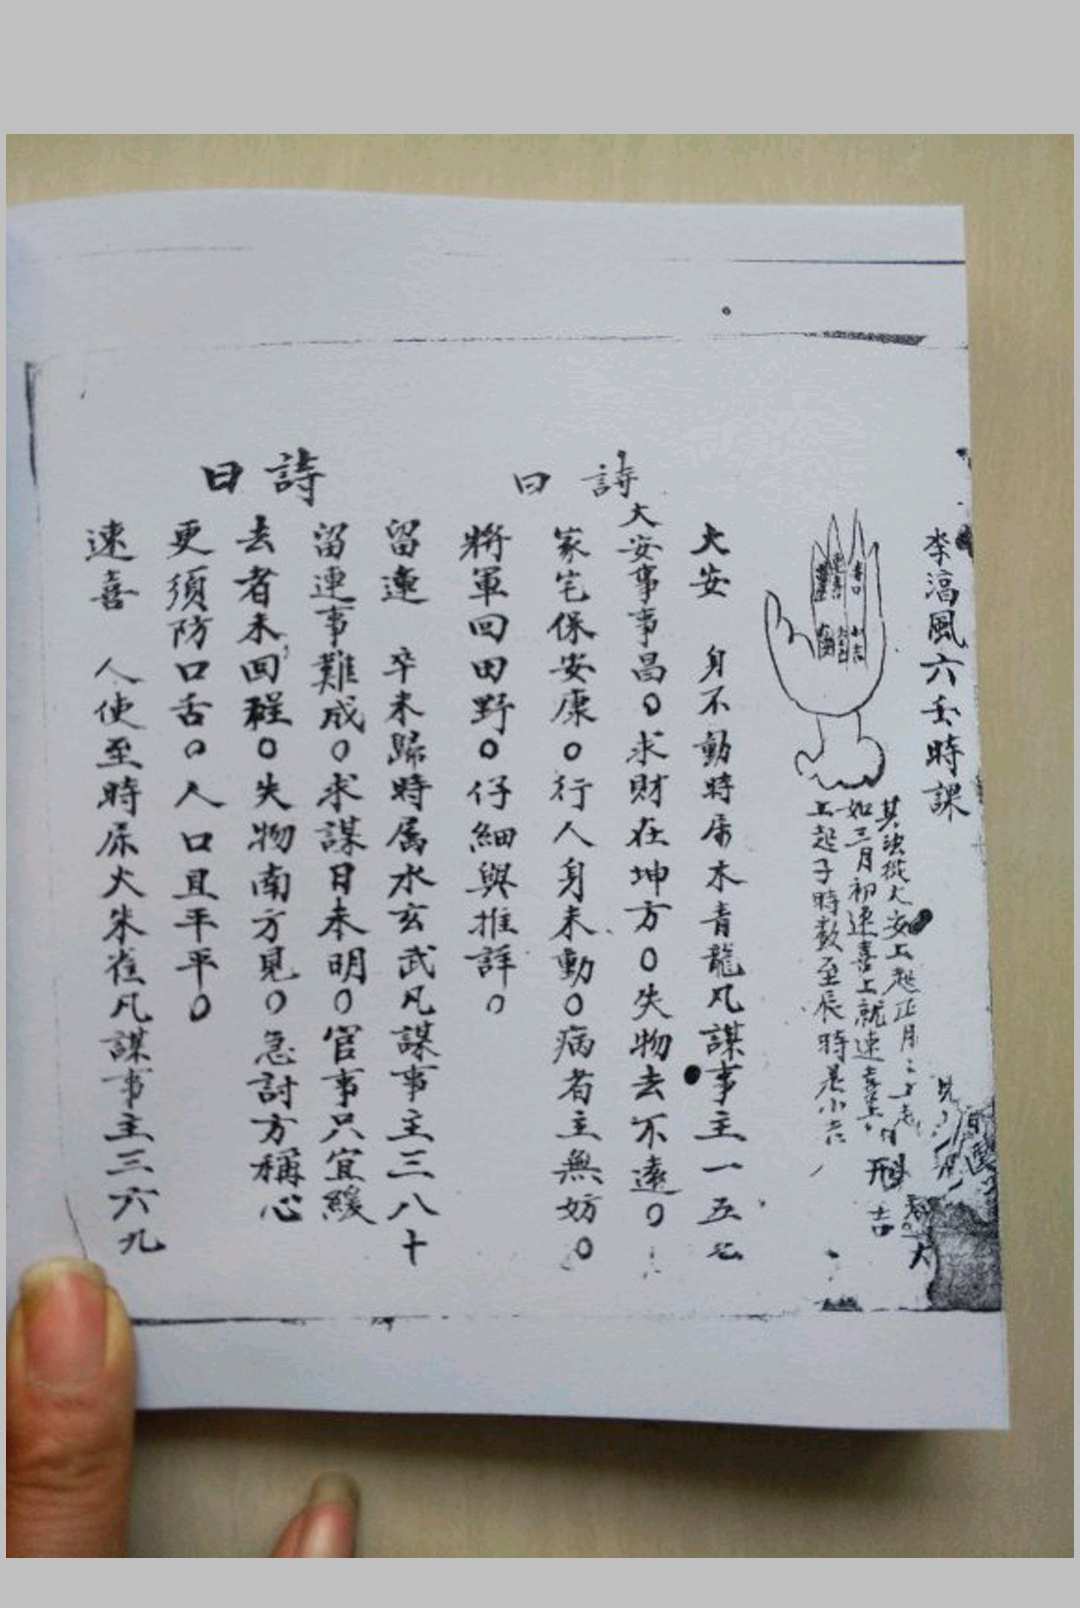 李滈風六壬時課
其法從大安上起正月
如三月初速喜上就速喜上
上起子時数至辰時是小吉
大安 身不動時属木青龍凡謀事主一五七
詩曰
大安事事昌○求財在坤方○失物去不遠○
家宅保安康○行人身未動○病者主無妨○
將軍回田野○仔細與推詳○
留連 卒未歸時属水玄武凡謀事主三八十
詩曰
留連事難成○求謀日未明○官事只宜緩
去者未回程○失物南方見○急討方稱心
更須防口舌○人口且平平○
速喜 人使至時屬火朱雀凡謀事主三六九